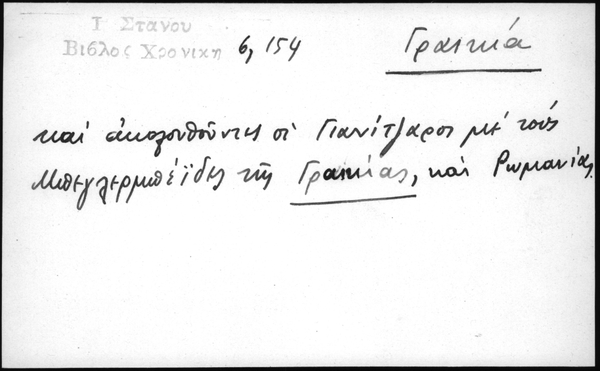 Ι Στανου
Βιβλος Χρονικη 6, 154
Γραικιά
καὶ ἀκολουθοῦντες οἱ Γιανίτζαροι μὲ τοὺς
Μπεγλερμπέϊδες τῆς Γραικίας, καὶ Ρωμανίας.